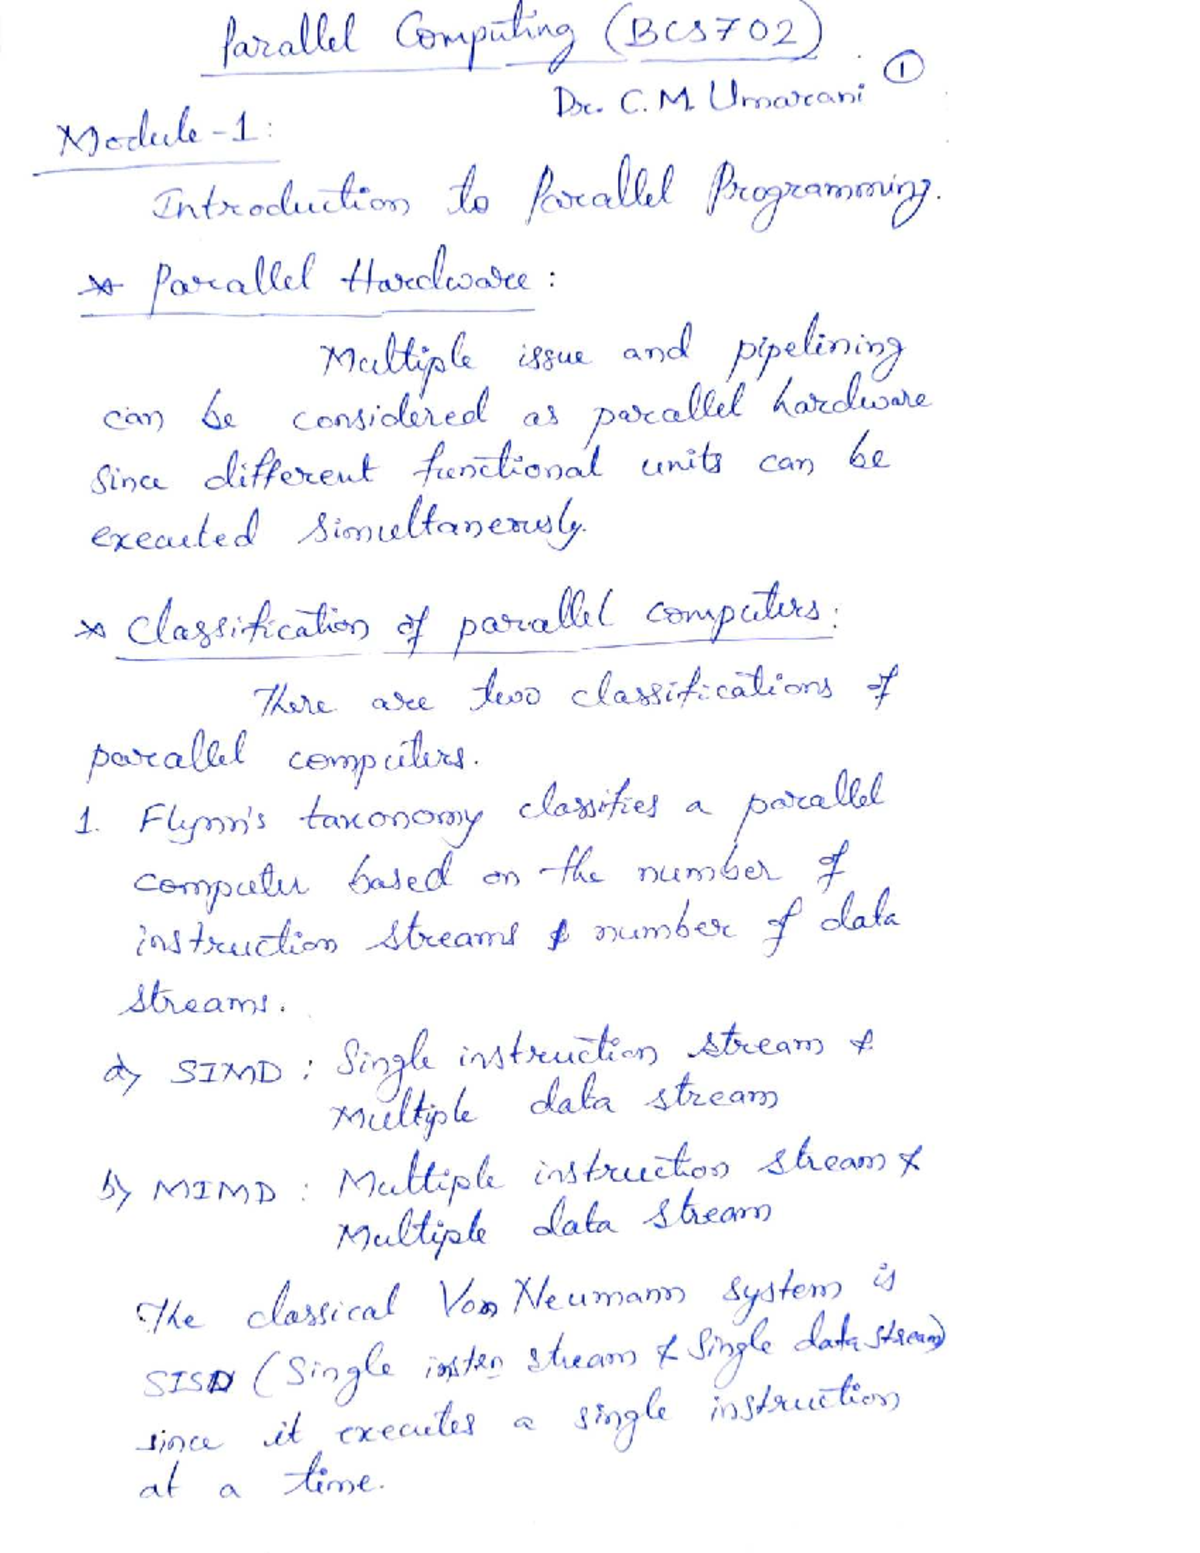 Parallel Computing (BCS702)
①
Dr. C.M. Umarani
Module-1:
Introduction to Parallel Programming.
* Parallel Hardware:
Multiple issue and pipelining
can be considered as parallel hardware
since different functional units can be
executed simultaneously.
* Classification of parallel computers:
There are two classifications of
parallel computers.
1. Flynn's taxonomy classifies a parallel
computer based on the number of
instruction streams & number of data
streams.
a) SIMD : Single instruction stream &
Multiple data stream
b) MIMD : Multiple instruction stream &
Multiple data stream
The classical Von Neumann system is
SISD (Single instrn stream & Single data stream)
since it executes a single instruction
at a time.